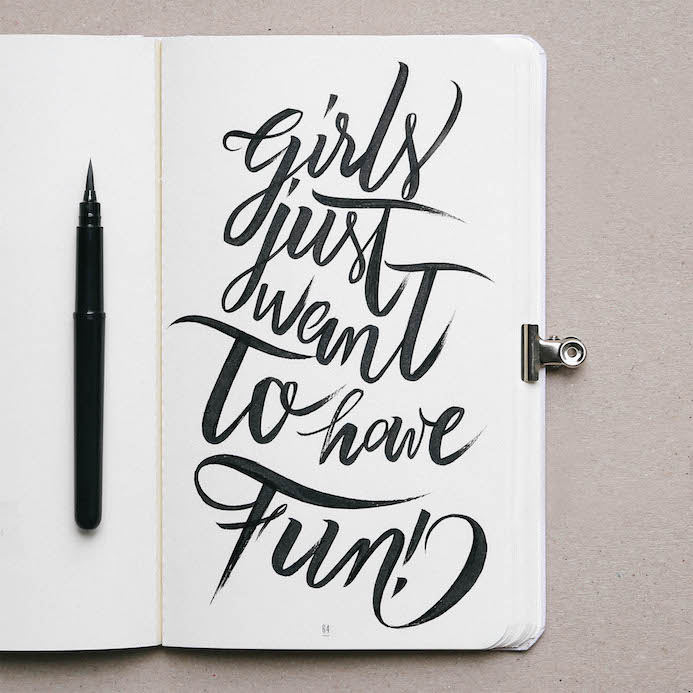 Girls
just
want
To have
Fun!
64